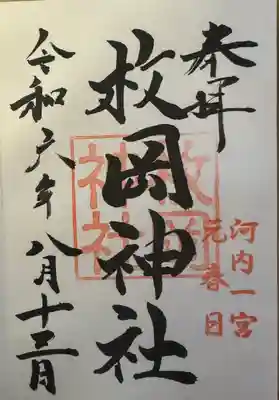 奉拝
河内一宮
元春日
枚岡神社
枚岡神社
令和六年八月十三日